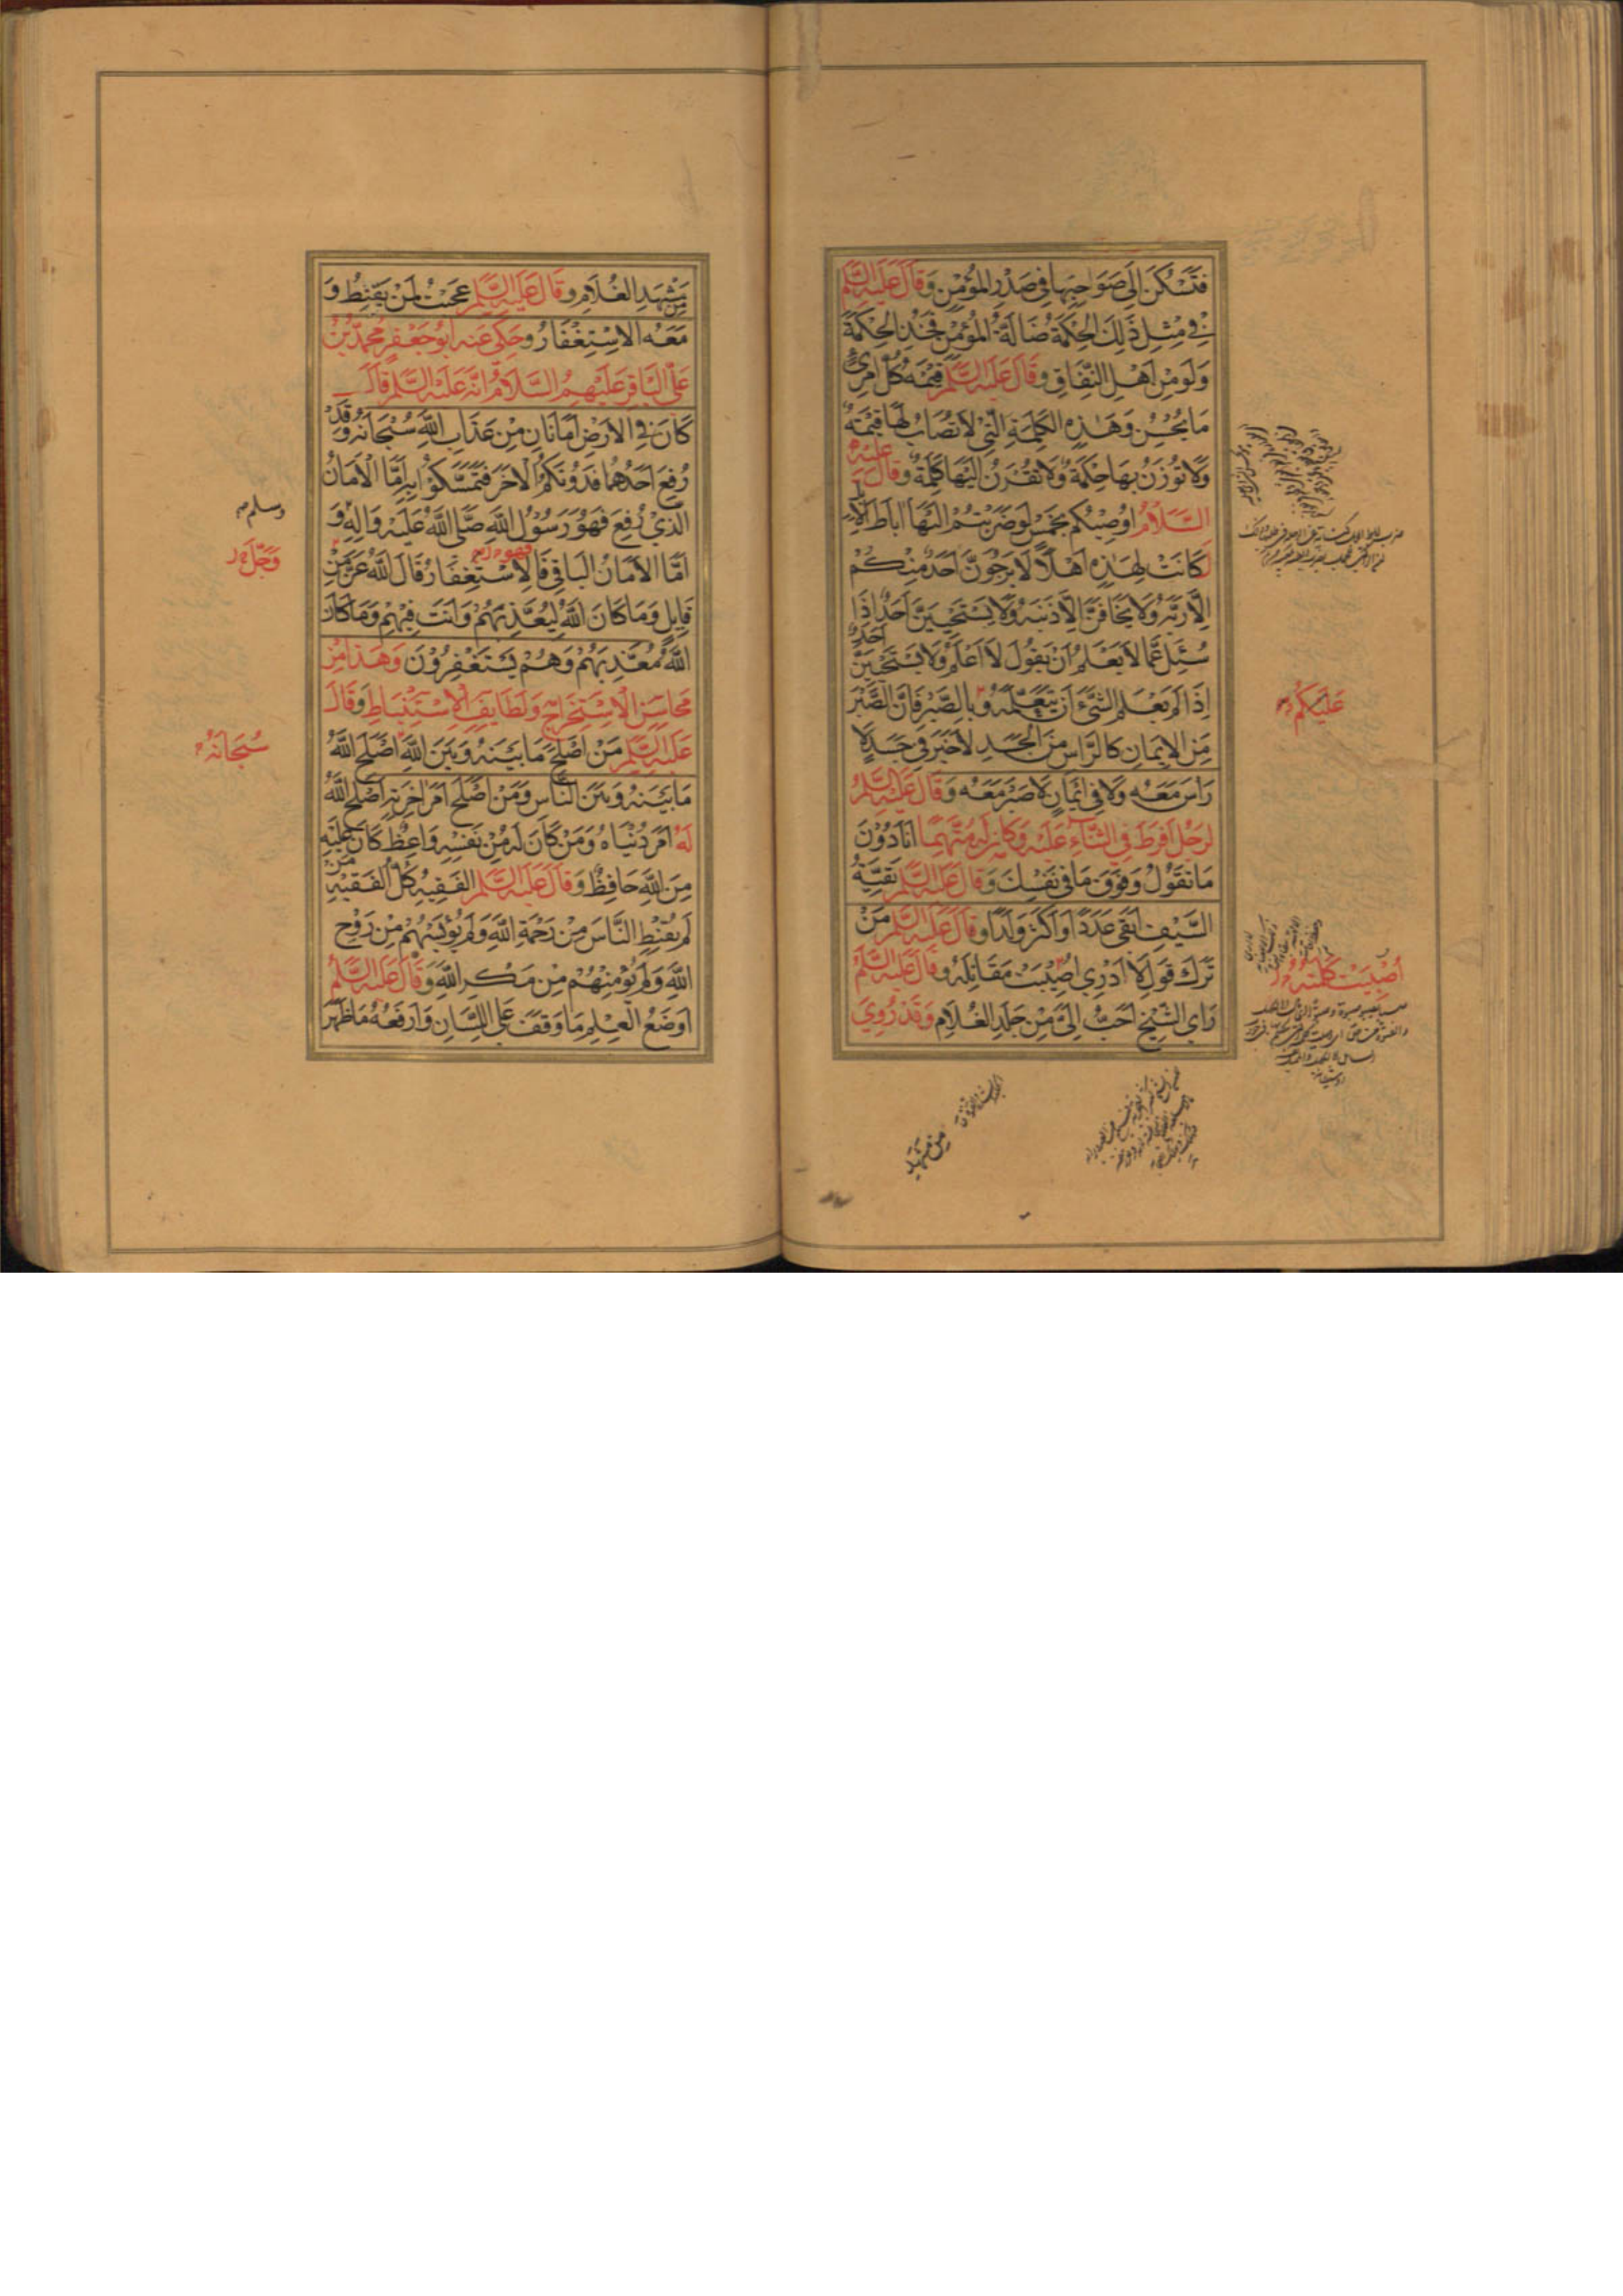 فَتَسْكُنَ إِلَى صَوَاحِبِهَا فِي صَدْرِ الْمُؤْمِنِ وَقَالَ عَلَيْهِ السَّلم
فِي مِثْلِ ذَلِكَ الْحِكْمَةُ ضَالَّةُ الْمُؤْمِنِ فَخُذِ الْحِكْمَةَ
وَلَوْ مِنْ اَهْلِ النِّفَاقِ وَقَالَ عَلَيْهِ السَّلم قِيْمَةُ كُلِّ امْرِئٍ
مَا يُحْسِنُ وَهَذِهِ الكَلِمَةِ الَّتِي لَا تُصَابُ لَهَا قِيْمَةٌ
وَلَا تُوزَنُ بِهَا حِكْمَةٌ وَلَا تُقْرَنُ اِلَيْهَا كَلِمَةٌ وَقَالَ عَلَيْهِ
السَّلَامُ اُوْصِيْكُمْ بِخَمْسٍ لَوْ ضَرَبْتُمْ اِلَيْهَا اٰبَاطَ الْاِبِلِ
لَكَانَتْ لِهَذِهِ اَهْلًا لَا يَرْجُوَنَّ اَحَدٌ مِنْكُمْ
اِلَّا رَبَّهُ وَلَا يَخَافَنَّ اِلَّا ذَنْبَهُ وَلَا يَسْتَحْيِيَنَّ اَحَدٌ اِذَا
سُئِلَ عَمَّا لَا يَعْلَمُ اَنْ يَقُولَ لَا اَعْلَمُ وَلَا يَسْتَحْيِيَنَّ اَحَدٌ
اِذَا لَمْ يَعْلَمِ الشَّيْءَ اَنْ يَتَعَلَّمَهُ وَبِالصَّبْرِ فَاِنَّ الصَّبْرَ
عَلَيْكُمْ
مِنَ الْاِيمَانِ كَالرَّاْسِ مِنَ الْجَسَدِ لَا خَيْرَ فِي جَسَدٍ لَا
رَاْسَ مَعَهُ وَلَا فِي اِيمَانٍ لَا صَبْرَ مَعَهُ وَقَالَ عَلَيْهِ السَّلم
لِرَجُلٍ اَفْرَطَ فِي الثَّنَاءِ عَلَيْهِ وَكَانَ لَهُ مُتَّهِمًا اَنَا دُوْنَ
مَا تَقُوْلُ وَفَوْقَ مَا فِي نَفْسِكَ وَقَالَ عَلَيْهِ السَّلم بَقِيَّةُ
السَّيْفِ اَبْقَى عَدَدًا وَاَكْثَرُ وَلَدًا وَقَالَ عَلَيْهِ السَّلم مَنْ
تَرَكَ قَوْلَ لَا اَدْرِي اُصِيْبَتْ مَقَاتِلُهُ وَقَالَ عَلَيْهِ السَّلم
اُصِيْبَتْ كَلِمَتُهُ
رَاْيُ الشَّيْخِ اَحَبُّ اِلَيَّ مِنْ جَلَدِ الغُلَامِ وَقَدْ رُوِيَ
مِنْ مَشْهَدِ
مِنْ مَشْهَدِ الغُلَامِ وَقَالَ عَلَيْهِ السَّلم عَجِبْتُ لِمَنْ يَقْنَطُ وَ
مَعَهُ الْاِسْتِغْفَارُ وَحَكَى عَنْهُ اَبُوْ جَعْفَرٍ مُحَمَّدُ بْنُ
عَلِيٍّ الْبَاقِرُ عَلَيْهِمُ السَّلَامُ اَنَّهُ عَلَيْهِ السَّلم قَالَ
كَانَ فِي الْاَرْضِ اَمَانَانِ مِنْ عَذَابِ اللّٰهِ سُبْحَانَهُ وَقَدْ
رُفِعَ اَحَدُهُمَا فَدُوْنَكُمُ الْاٰخَرَ فَتَمَسَّكُوْا بِهِ اَمَّا الْاَمَانُ
الَّذِيْ رُفِعَ فَهُوَ رَسُوْلُ اللّٰهِ صَلَّى اللّٰهُ عَلَيْهِ وَاٰلِهِ وَ
وسلم
اَمَّا الْاَمَانُ الْبَاقِي فَالْاِسْتِغْفَارُ قَالَ اللّٰهُ عَزَّ مِنْ
فهو
وَجَلَّ
قَائِلٍ وَمَا كَانَ اللّٰهُ لِيُعَذِّبَهُمْ وَاَنْتَ فِيْهِمْ وَمَا كَانَ
اللّٰهُ مُعَذِّبَهُمْ وَهُمْ يَسْتَغْفِرُوْنَ وَهَذَا مِنْ
مَحَاسِنِ الْاِسْتِخْرَاجِ وَلَطَايِفِ الْاِسْتِنْبَاطِ وَقَالَ
عَلَيْهِ السَّلم مَنْ اَصْلَحَ مَا بَيْنَهُ وَبَيْنَ اللّٰهِ اَصْلَحَ اللّٰهُ
سُبْحَانَهُ
مَا بَيْنَهُ وَبَيْنَ النَّاسِ وَمَنْ اَصْلَحَ اَمْرَ اٰخِرَتِهِ اَصْلَحَ اللّٰهُ
لَهُ اَمْرَ دُنْيَاهُ وَمَنْ كَانَ لَهُ مِنْ نَفْسِهِ وَاعِظٌ كَانَ عَلَيْهِ
مِنَ اللّٰهِ حَافِظٌ وَقَالَ عَلَيْهِ السَّلم الْفَقِيْهُ كُلُّ الْفَقِيْهِ مَنْ
لَمْ يُقَنِّطِ النَّاسَ مِنْ رَحْمَةِ اللّٰهِ وَلَمْ يُؤْيِسْهُمْ مِنْ رَوْحِ
اللّٰهِ وَلَمْ يُؤْمِنْهُمْ مِنْ مَكْرِ اللّٰهِ وَقَالَ عَلَيْهِ السَّلم
اَوْضَعُ الْعِلْمِ مَا وَقَفَ عَلَى اللِّسَانِ وَاَرْفَعُهُ مَا ظَهَرَ